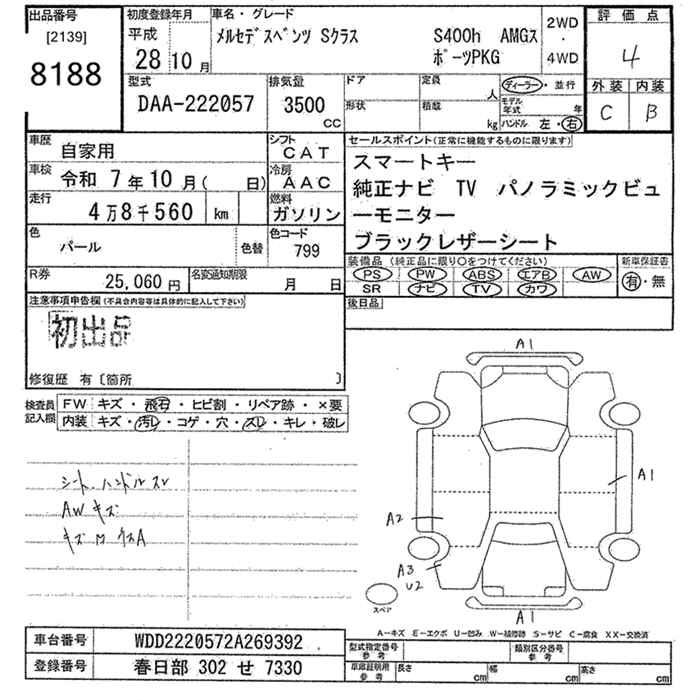 出品番号
[2139]
8188
初度登録年月
平成
28 10 月
車名・グレード
メルセデスベンツ Sクラス S400h AMGス
ポーツPKG
2WD
・
4WD
評価点
4
外装 内装
C B
型式
DAA-222057
排気量
3500
CC
ドア
定員
人
形状
積酸
kg
ディーラー・並行
モデル年式 年
ハンドル 左・右
車歴
自家用
シフト
CAT
車検
令和 7年10月( 日)
冷房
AAC
走行
4万8千560 km
燃料
ガソリン
色
パール
色替
色コード
799
R券
25,060円
名変通知期限
月 日
セールスポイント(正常に機能するものに限ります)
スマートキー
純正ナビ TV パノラミックビュ
ーモニター
ブラックレザーシート
装備品(純正品に限り〇をつけてください)
PS PW ABS エアB AW
SR ナビ TV カワ
新車保証書
有・無
後日品
注意事項申告欄(不具合内容等は具体的に記入して下さい)
初出品
修復歴 有〔箇所 〕
検査員記入欄
FW キズ・飛石・ヒビ割・リペア跡・×要
内装 キズ・汚レ・コゲ・穴・スレ・キレ・破レ
シート、ハンドルスレ
AWキズ
A1
A1
A2
A3
U2
A1
スペア
A―キズ E―エクボ U―凹み W―補修跡 S―サビ C―腐食 XX―交換済
車台番号
WDD2220572A269392
登録番号
春日部 302 せ 7330
型式指定番号参考
類別区分番号参考
車庫証明用参考
長さ cm
幅 cm
高さ cm